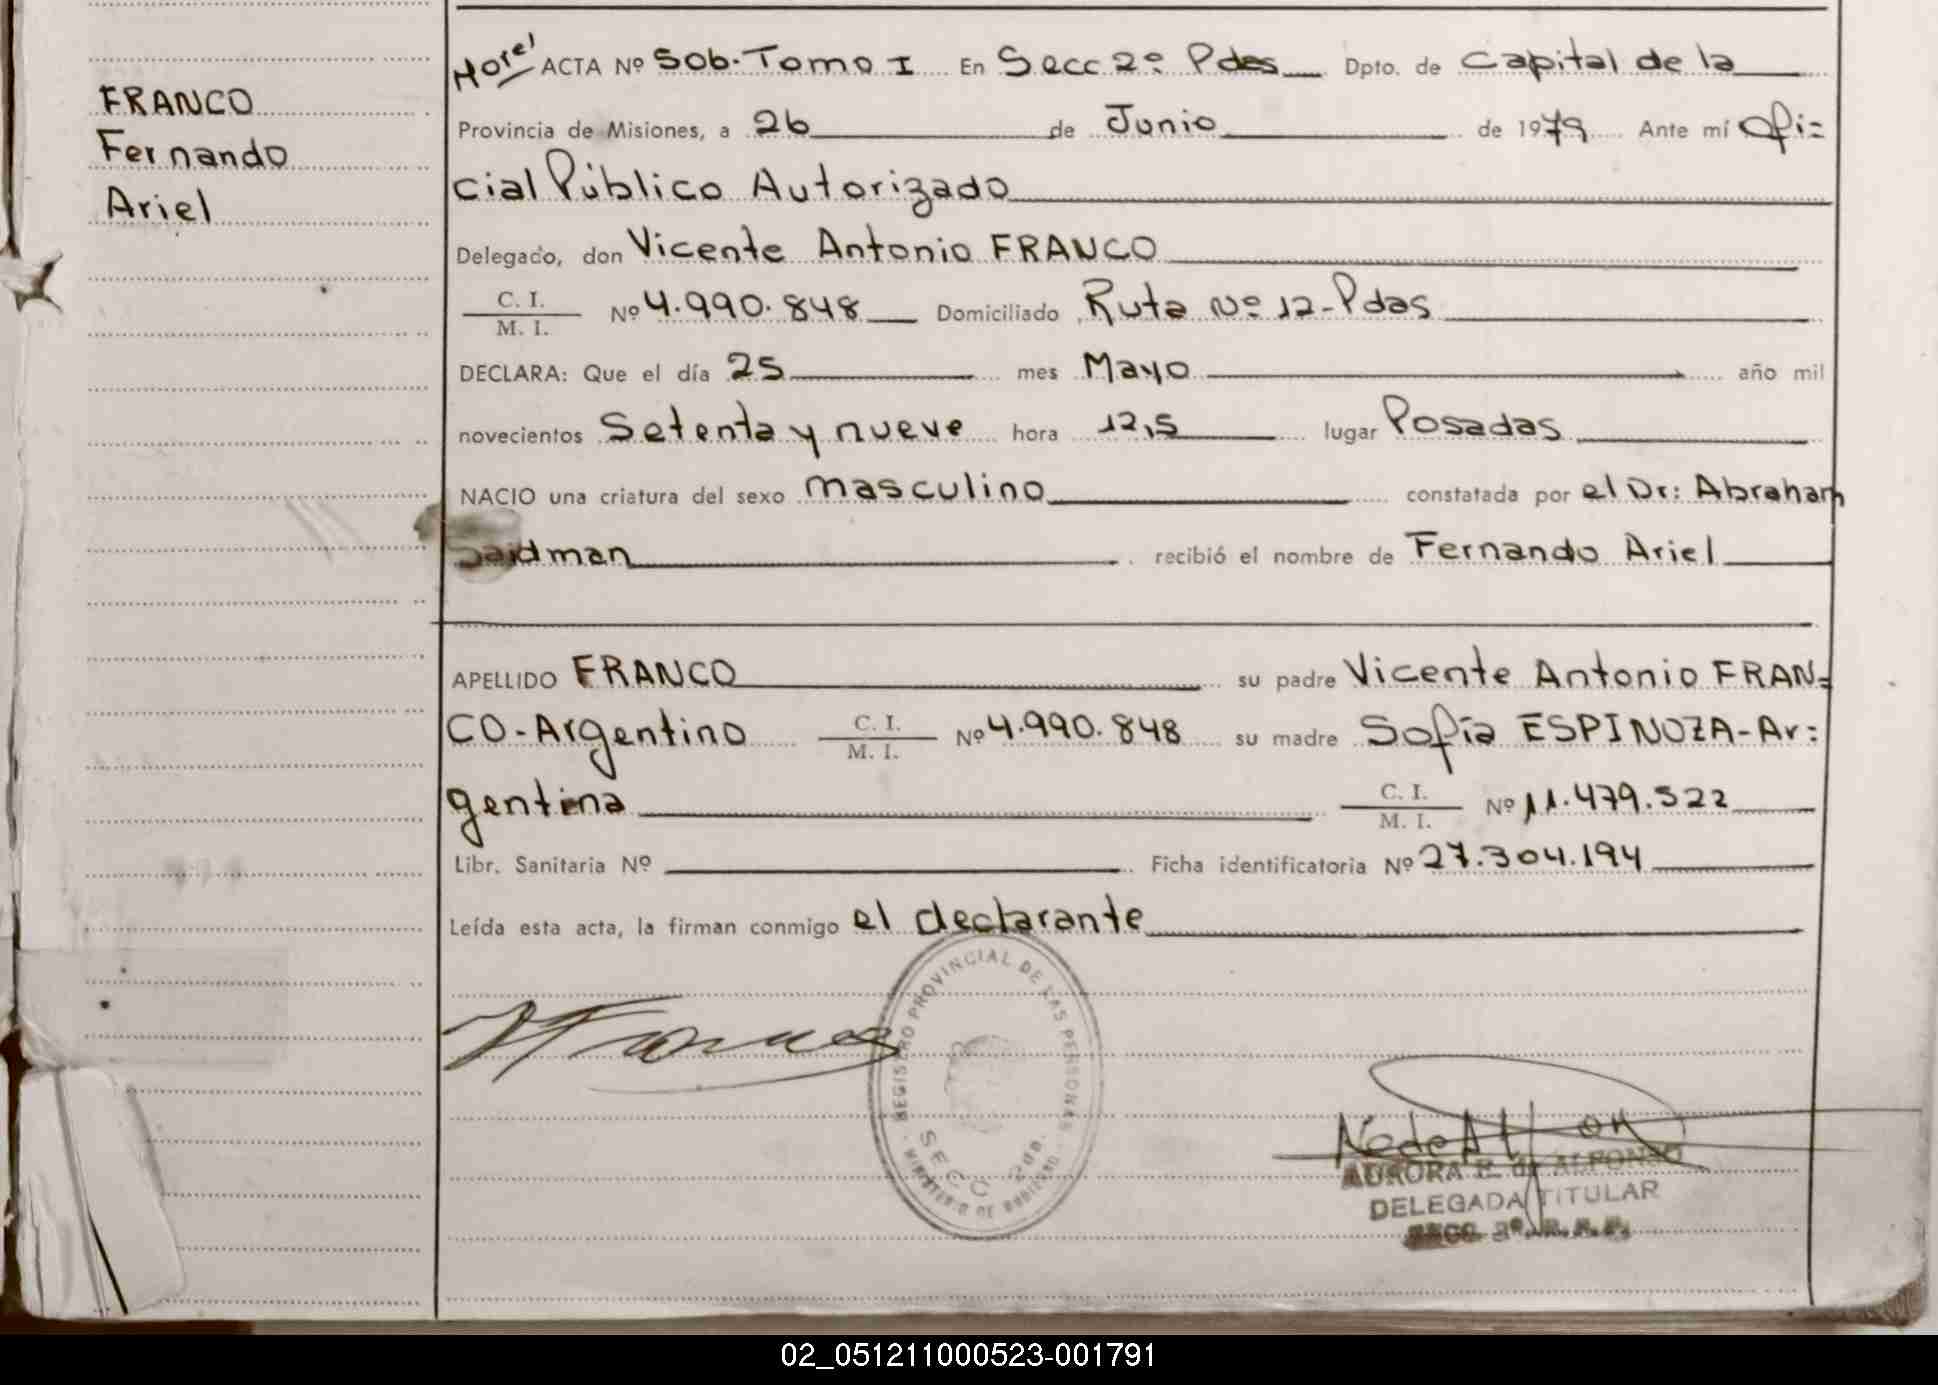 FRANCO
Fernando
Ariel
ACTA Nº 506. Tomo I En Secc 2º Pdas Dpto. de Capital de la
Provincia de Misiones, a 26 de Junio de 1979 Ante mí Ofi=
cial Público Autorizado
Delegado, don Vicente Antonio FRANCO
C. I.
M. I. Nº 4.990.848 Domiciliado Ruta Nº 12-Pdas
DECLARA: Que el día 25 mes Mayo año mil
novecientos Setenta y nueve hora 12,5 lugar Posadas
NACIO una criatura del sexo masculino constatada por el Dr: Abraham
Saidman recibió el nombre de Fernando Ariel
APELLIDO FRANCO su padre Vicente Antonio FRAN=
CO-Argentino C. I. M. I. Nº 4.990.848 su madre Sofía ESPINOZA-Ar=
gentina C. I. M. I. Nº 11.479.522
Libr. Sanitaria Nº Ficha identificatoria Nº 27.304.194
Leída esta acta, la firman conmigo el declarante
REGISTRO PROVINCIAL DE LAS PERSONAS
SECC 2da.
MINISTERIO DE GOBIERNO
AURORA E. de ALFONSO
DELEGADA TITULAR
SECC. 2º R.P.P.
02_051211000523-001791